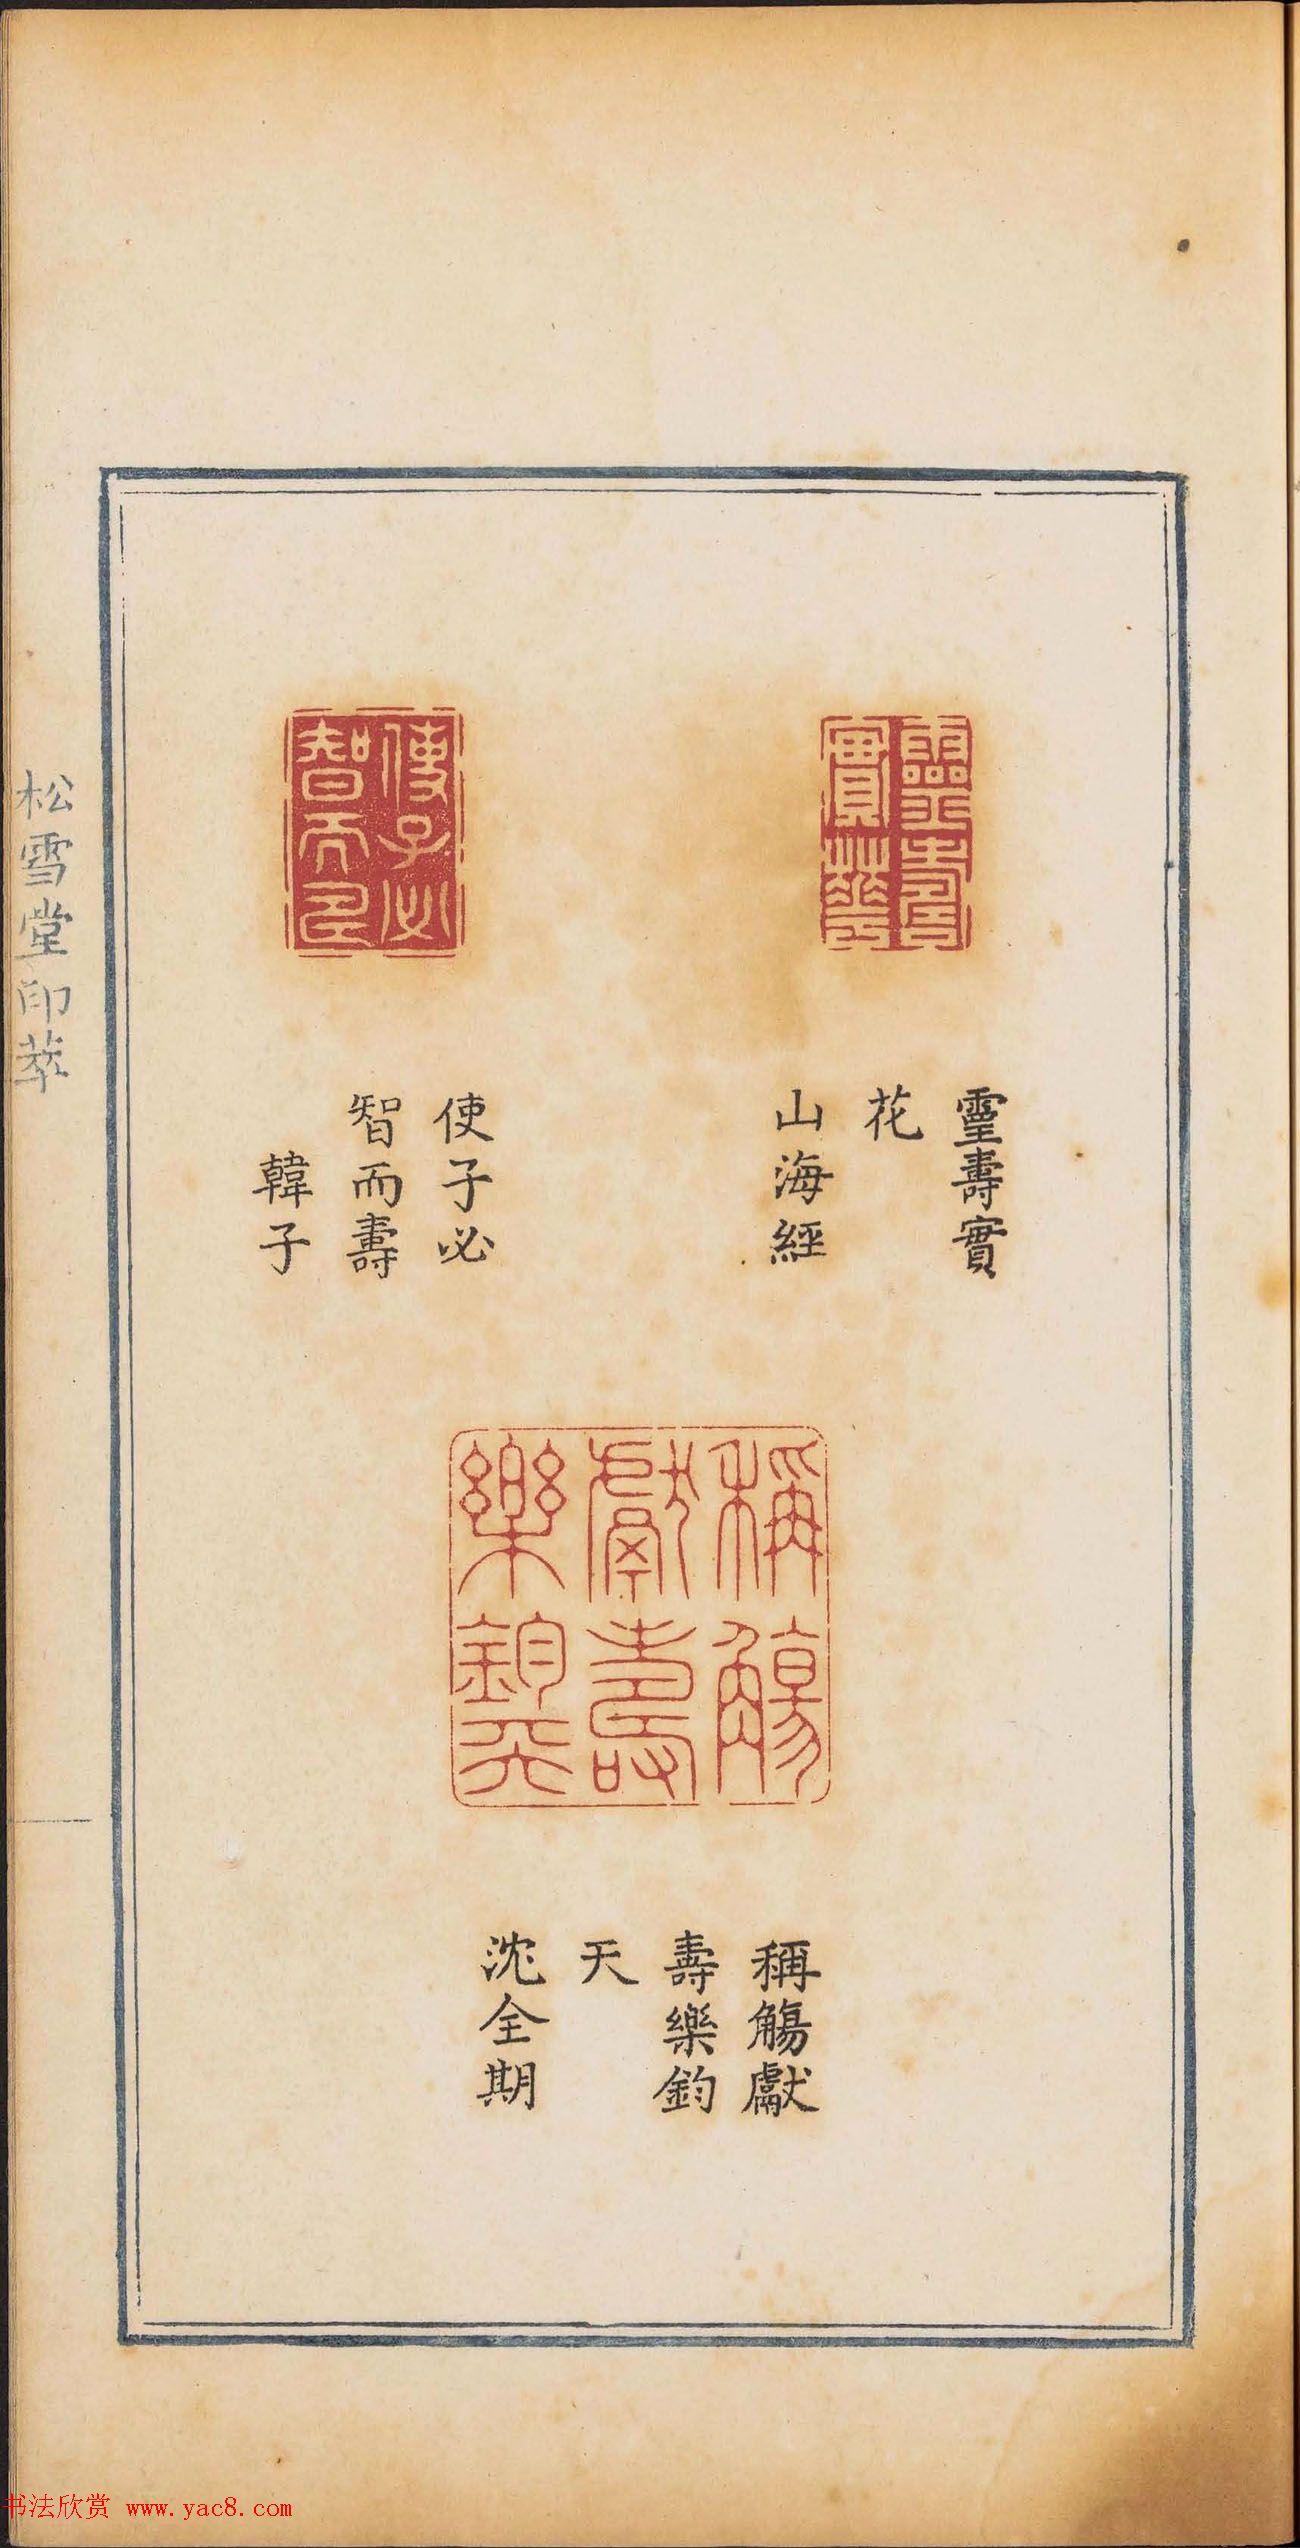 靈壽實華
靈壽實
花
山海經
使子必
智而壽
使子必
智而壽
韓子
稱觴
獻壽
樂鈞天
稱觴獻
壽樂鈞
天
沈全期
松雪堂印萃
书法欣赏 www.yac8.com